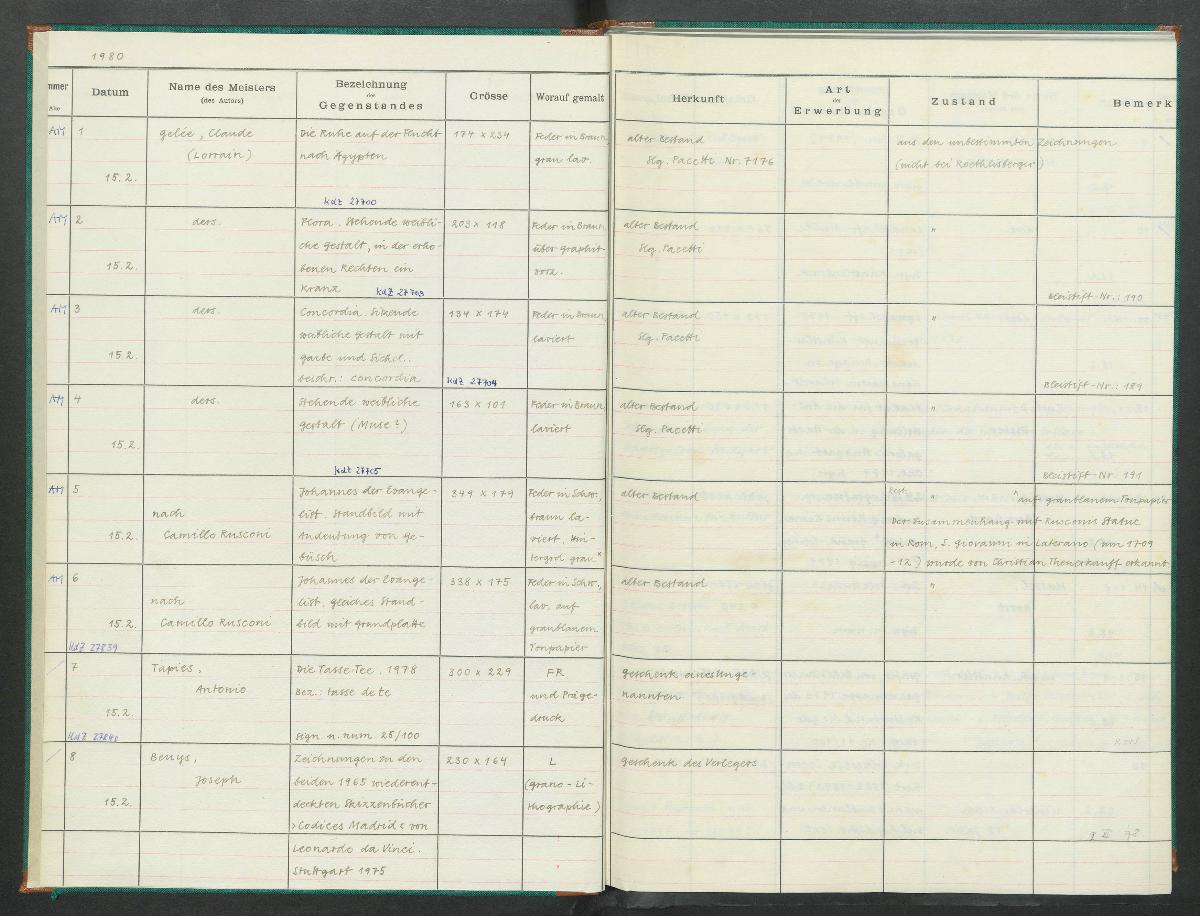 1980
mmer
Alte
Datum
Name des Meisters
(des Autors)
Bezeichnung
des
Gegenstandes
Grösse
Worauf gemalt
Herkunft
Art
der
Erwerbung
Zustand
Bemerk
AM 1
15.2.
Gelée, Claude
(Lorrain)
Die Ruhe auf der Flucht
nach Ägypten
KdZ 27700
174 x 234
Feder in Braun,
grau lav.
alter Bestand
Slg. Pacetti Nr. 7176
aus den unbestimmten Zeichnungen
(nicht bei Roethlisberger)
AM 2
15.2.
ders.
Flora. Stehende weibli-
che Gestalt, in der erho-
benen Rechten ein
Kranz KdZ 27703
203 x 118
Feder in Braun
über Graphit-
vorz.
alter Bestand
Slg. Pacetti
"
Bleistift-Nr.: 190
AM 3
15.2.
ders.
Concordia. Sitzende
weibliche Gestalt mit
Garbe und Sichel.
beschr.: concordia
134 x 174
KdZ 27704
Feder in Braun,
laviert
alter Bestand
Slg. Pacetti
"
Bleistift-Nr.: 189
AM 4
15.2.
ders.
Stehende weibliche
Gestalt (Muse?)
KdZ 27705
163 x 101
Feder in Braun,
laviert
alter Bestand
Slg. Pacetti
"
Bleistift-Nr. 191
AM 5
15.2.
nach
Camillo Rusconi
Johannes der Evange-
list. Standbild mit
Andeutung von Ge-
büsch
349 x 179
Feder in Schw.,
braun la-
viert, Hin-
tergrd grau x
alter Bestand
Rest. " x auf graublauem Tonpapier
Der Zusammenhang mit Rusconis Statue
in Rom, S. Giovanni in Laterano (um 1709
-12?) wurde von Christian Theuerkauff erkannt
AM 6
15.2.
KdZ 27839
nach
Camillo Rusconi
Johannes der Evange-
list, gleiches Stand-
bild mit Grundplatte
338 x 175
Feder in Schw.,
lav. auf
graublauem
Tonpapier
alter Bestand
"
7
15.2.
KdZ 27840
Tàpies,
Antonio
Die Tasse Tee. 1978
Bez.: tasse de te
sign. u. num. 25/100
300 x 229
FR
und Präge-
druck
Geschenk eines Unge-
nannten
8
15.2.
Beuys,
Joseph
Zeichnungen zu den
beiden 1965 wiederent-
deckten Skizzenbücher
>Codices Madrid< von
Leonardo da Vinci.
Stuttgart 1975
230 x 164
L
(Grano-Li-
thographie)
Geschenk des Verlegers